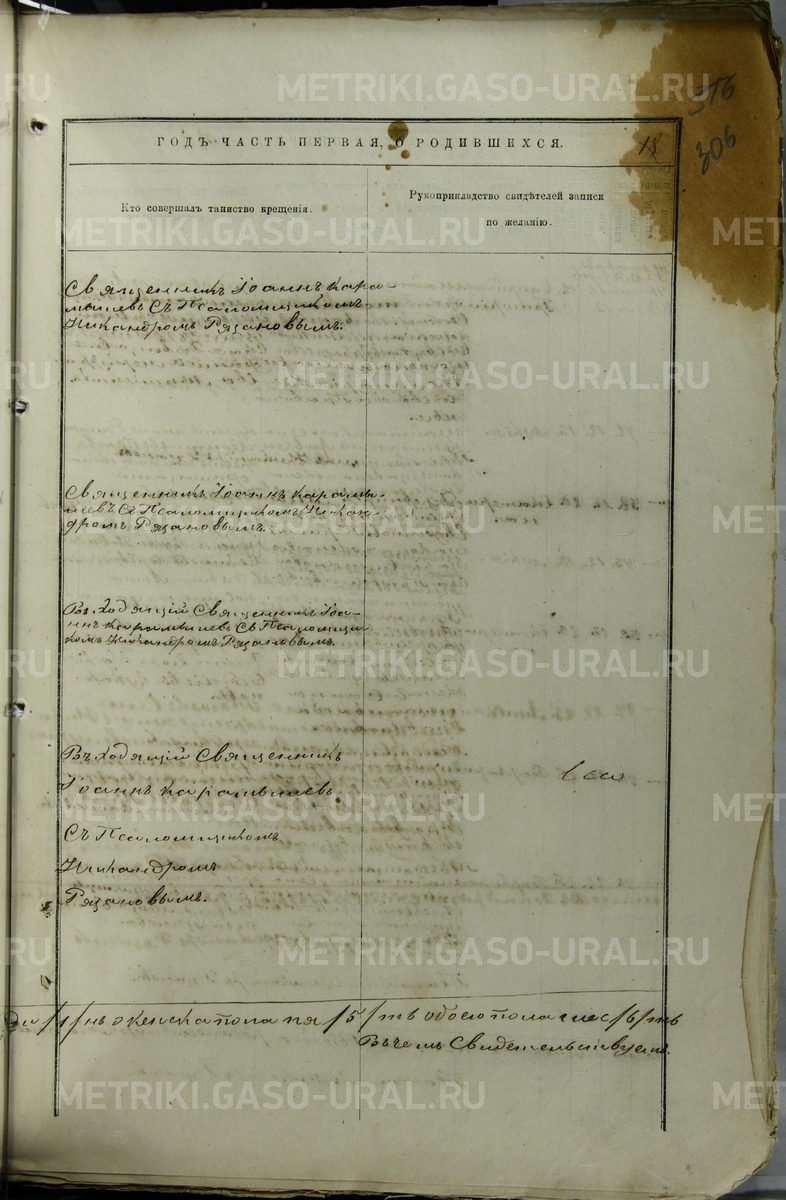 METRIKI.GASO-URAL.RU
316
306
ГОДЪ ЧАСТЬ ПЕРВАЯ, О РОДИВШИХСЯ.
18
Кто совершалъ таинство крещенія.
Рукоприкладство свидѣтелей записи
по желанію.
METRIKI.GASO-URAL.RU
Священникъ Іоаннъ Кара-
мышевъ Съ Псаломщикомъ
Никандромъ Рязановымъ.
METRIKI.GASO-URAL.RU
Священникъ Іоаннъ Карамы-
шевъ Съ Псаломщикомъ Никан-
дромъ Рязановымъ.
METRIKI.GASO-URAL.RU
Въ Ходящій Священникъ Іоа-
ннъ Карамышевъ Съ Псаломщи-
комъ Никандромъ Рязановымъ.
METRIKI.GASO-URAL.RU
Въ Ходящій Священникъ
Іоаннъ Карамышевъ
METRIKI.GASO-URAL.RU
Съ Псаломщикомъ
Никандромъ
Рязановымъ.
METRIKI.GASO-URAL.RU
/1/нъ женска пола пя /5/ть обоего пола шес/6/ть
Въ чемъ Свидетельствуемъ.
METRIKI.GASO-URAL.RU